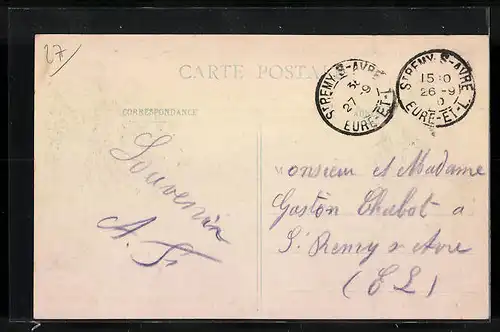 27
CARTE POSTALE
CORRESPONDANCE
ST REMY-S-AVRE
27 -9
EURE-ET-L.
ST REMY-S-AVRE
15 0
26 -9
EURE-ET-L.
Souvenir
Monsieur et Madame
Gaston Chabot a
St Remy s Avre
(E L)